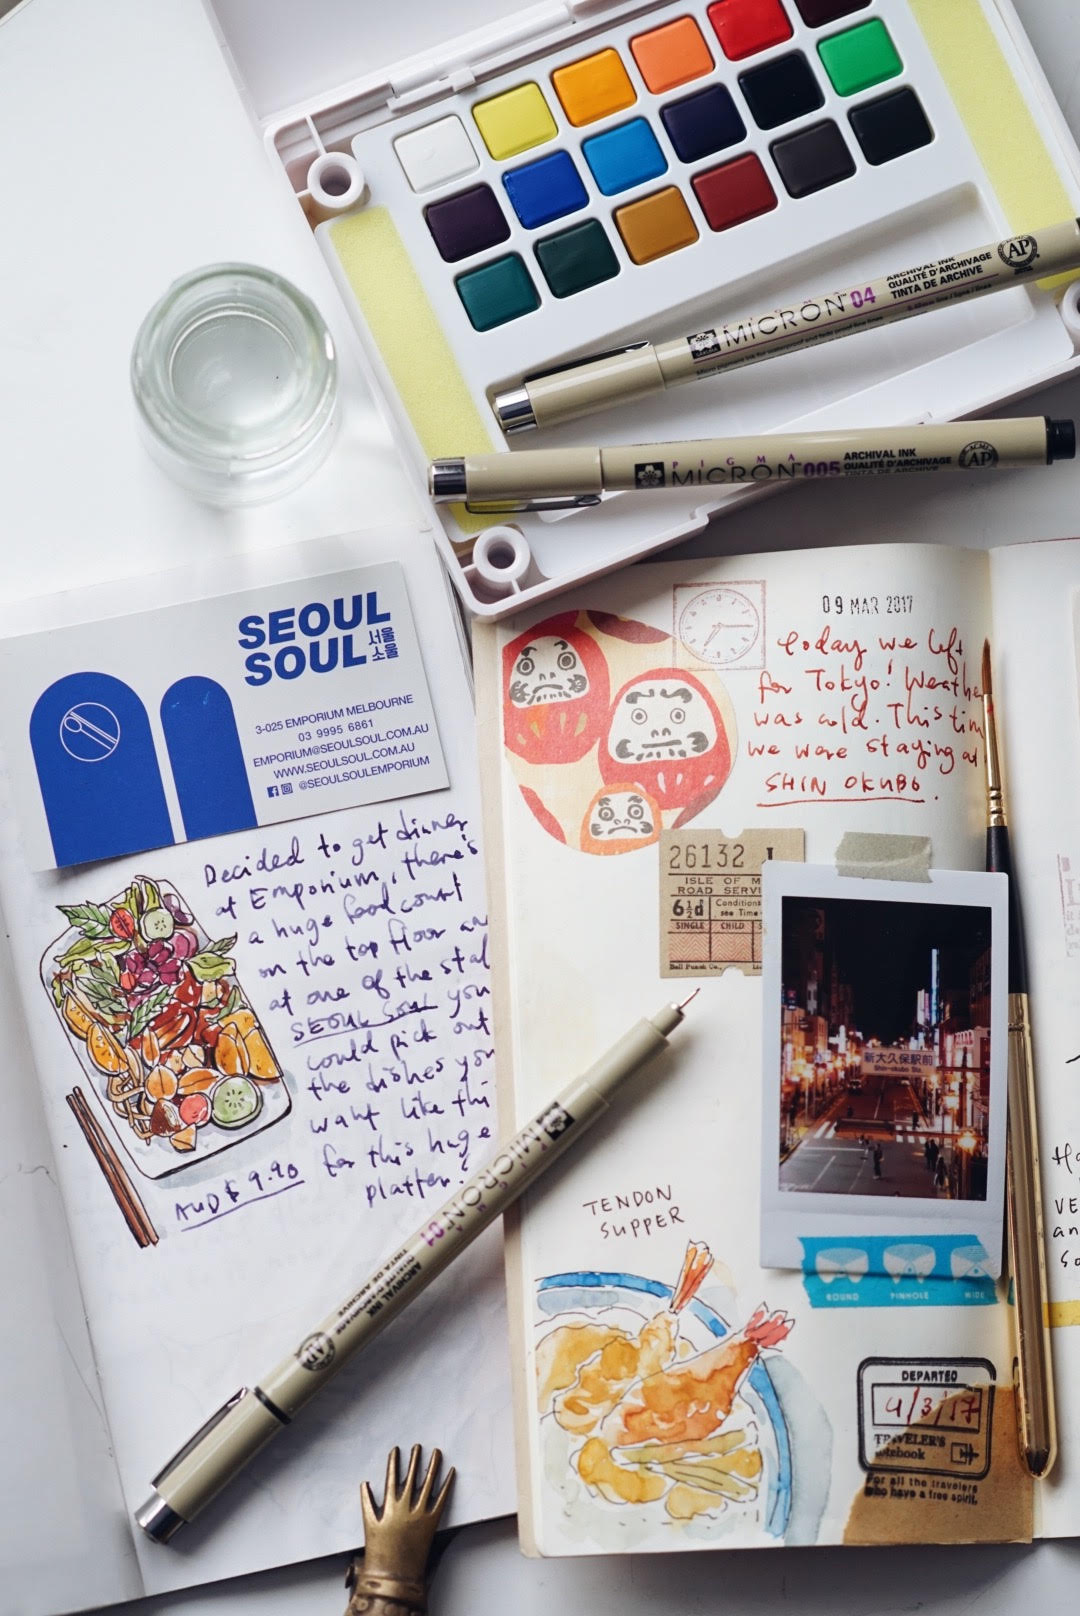 MICRON 04
ARCHIVAL INK
QUALITÉ D'ARCHIVAGE
TINTA DE ARCHIVE
AP
Micro pigment ink for waterproof and fade proof fine lines
PIGMA
MICRON 005
ARCHIVAL INK
QUALITÉ D'ARCHIVAGE
TINTA DE ARCHIVE
ACMI
AP
SEOUL
SOUL
서울
소울
3-025 EMPORIUM MELBOURNE
03 9995 6861
EMPORIUM@SEOULSOUL.COM.AU
WWW.SEOULSOUL.COM.AU
@SEOULSOULEMPORIUM
Decided to get dinner
at Emporium, there's
a huge food court
on the top floor an
at one of the stal
SEOUL SOUL you
could pick out
the dishes you
want like thi
for this huge
platter!
AUD $ 9.90
MICRON 01
ARCHIVAL INK
TINTA DE ARCHIVE
AP
09 MAR 2017
Today we left
for Tokyo! Weathe
was cold. This tim
we were staying at
SHIN OKUBO.
26132
ISLE OF M
ROAD SERVI
6½d
Conditions
see Time
SINGLE
CHILD
S
Bell Punch Co.,
新大久保駅前
Shin-okubo Sta.
ROUND
PINHOLE
WIDE
TENDON
SUPPER
DEPARTED
9/3/17
TRAVELER'S
notebook
For all the travelers
who have a free spirit.
Ha
VE
an
So